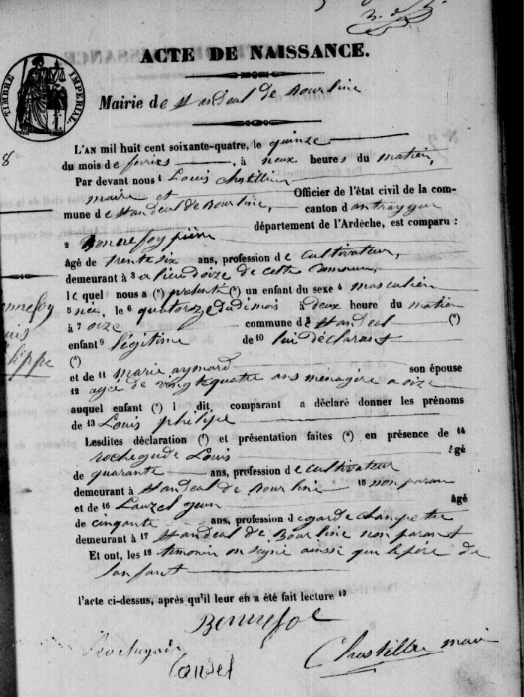 TIMBRE IMPERIAL
ACTE DE NAISSANCE.
Mairie de St andeol de Bourline
8
L'AN mil huit cent soixante-quatre, le quinze
du mois de fevrier, à neuf heures du matien,
Par devant nous 1 Louis chastillier
maire et Officier de l'état civil de la com-
mune de St andeol de Bourline, canton d'antraygue
département de l'Ardèche, est comparu :
2 Bonnefoy pierre
âgé de trente six ans, profession de cultivateur,
demeurant à 3 oize de cette Commune,
le quel nous a (*) présenté (*) un enfant du sexe 4 masculien
5 née, le 6 quatorze du dimois à deux heure du matien
à 7 oize commune de 8 St andeol (*)
enfant 9 légitime de 10 lui déclarant
(*)
et de 11 marie aymard son épouse
12 agée de vingt quatre ans ménagère a oize
auquel enfant (*) l dit, comparant a déclaré donner les prénoms
de 13 Louis philipe
Lesdites déclaration (*) et présentation faites (*) en présence de 14
rochegude Louis âgé
de quarante ans, profession de cultivateur
demeurant à St andeol de Bourline 15 non paran
et de 16 Lauzel âgé
de cinquante ans, profession de garde champetre
demeurant à 17 St andeol de Bourline non parant
Et ont, les 18 timouin on signé ainsi que le père de
lanfant
l'acte ci-dessus, après qu'il leur en a été fait lecture 19
Bonnefoi
Rochegude
Lauzel
Chastillier maire